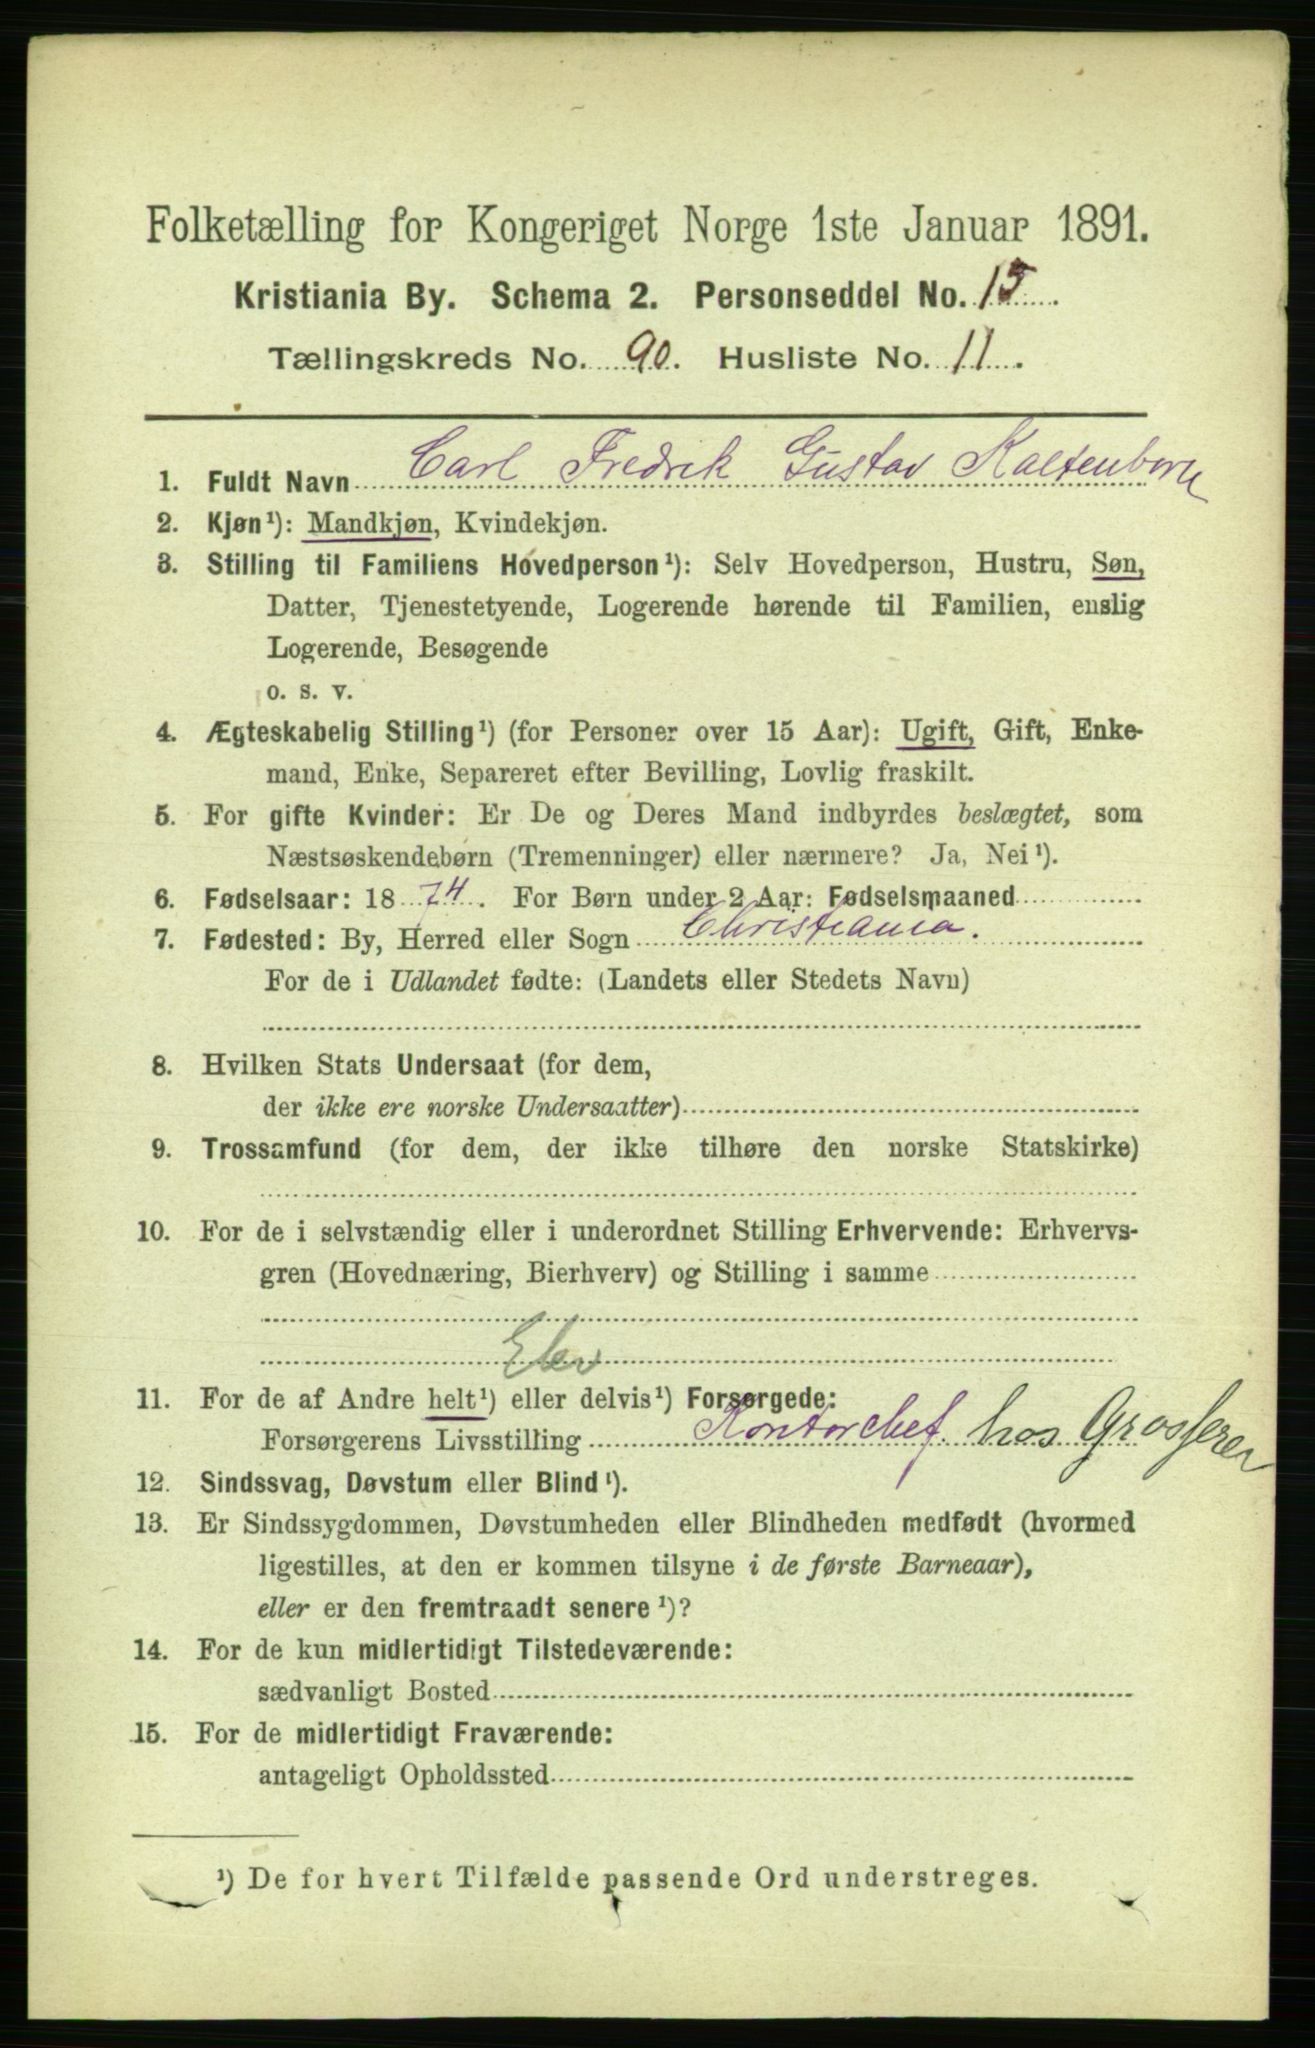 Folketælling for Kongeriget Norge 1ste Januar 1891.
Kristiania By. Schema 2. Personseddel No. 15.
Tællingskreds No. 90. Husliste No. 11.
1. Fuldt Navn Carl Fredrik Gustav Kaltenborn
2. Kjøn¹): Mandkjøn, Kvindekjøn.
3. Stilling til Familiens Hovedperson¹): Selv Hovedperson, Hustru, Søn,
Datter, Tjenestetyende, Logerende hørende til Familien, enslig
Logerende, Besøgende
o. s. v.
4. Ægteskabelig Stilling¹) (for Personer over 15 Aar): Ugift, Gift, Enke-
mand, Enke, Separeret efter Bevilling, Lovlig fraskilt.
5. For gifte Kvinder: Er De og Deres Mand indbyrdes beslægtet, som
Næstsøskendebørn (Tremenninger) eller nærmere? Ja, Nei¹).
6. Fødselsaar: 1874. For Børn under 2 Aar: Fødselsmaaned
7. Fødested: By, Herred eller Sogn Christiania.
For de i Udlandet fødte: (Landets eller Stedets Navn)
8. Hvilken Stats Undersaat (for dem,
der ikke ere norske Undersaatter)
9. Trossamfund (for dem, der ikke tilhøre den norske Statskirke)
10. For de i selvstændig eller i underordnet Stilling Erhvervende: Erhvervs-
gren (Hovednæring, Bierhverv) og Stilling i samme
Elev
11. For de af Andre helt¹) eller delvis¹) Forsørgede:
Forsørgerens Livsstilling Kontorchef. hos Grosserer
12. Sindssvag, Døvstum eller Blind¹).
13. Er Sindssygdommen, Døvstumheden eller Blindheden medfødt (hvormed
ligestilles, at den er kommen tilsyne i de første Barneaar),
eller er den fremtraadt senere¹)?
14. For de kun midlertidigt Tilstedeværende:
sædvanligt Bosted
15. For de midlertidigt Fraværende:
antageligt Opholdssted
¹) De for hvert Tilfælde passende Ord understreges.